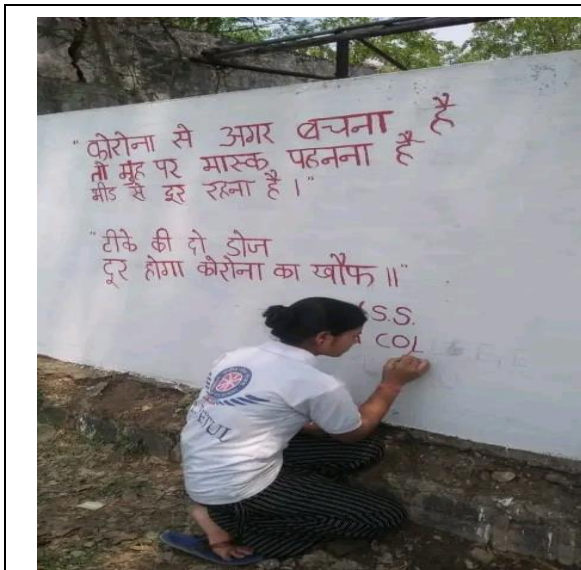 "कोरोना से अगर बचना है
तो मुंह पर मास्क पहनना है
भीड से दूर रहना है।"
"टीके की दो डोज
दूर होगा कोरोना का खौफ॥"
S.S.
COL